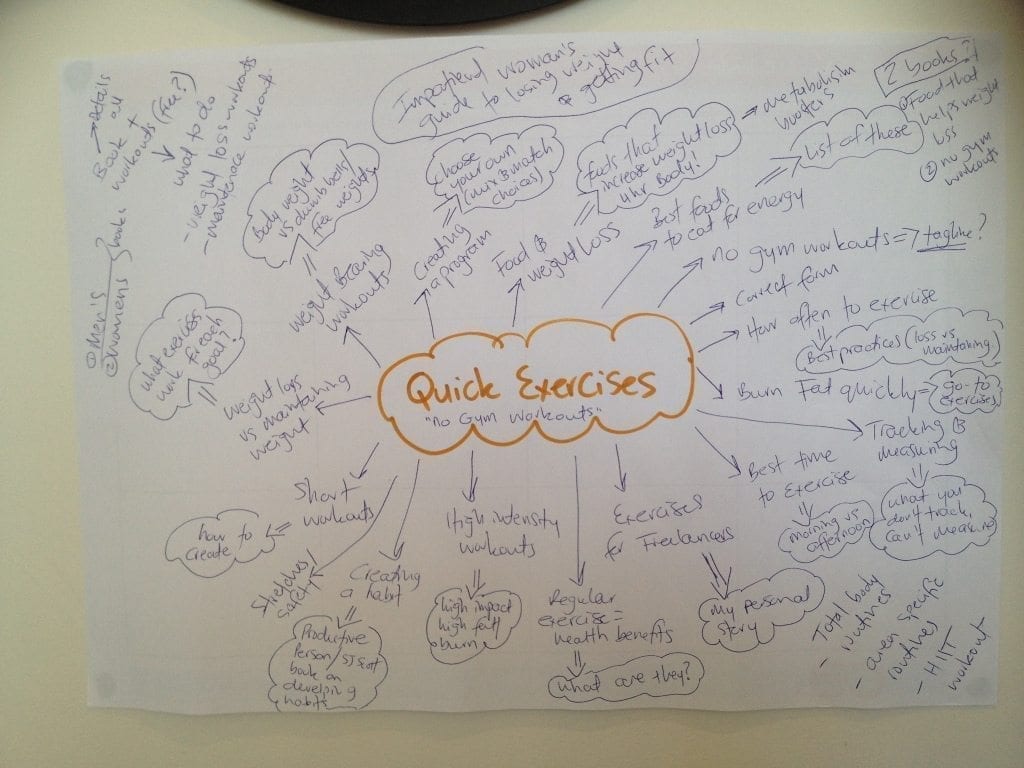 Impatient woman's
guide to losing weight
& getting fit
2 books?
① Food that
helps weight
loss
② no gym
workouts
→ details
Book all
workouts +
(Free?)
what to do
- weight loss workouts
- maintenance workout
① Men's
② Womens
books
Body weight
vs dumbbells/
free weights
weight bearing
workouts
choose
your own
(mix & match
choices)
Creating
a program
foods that
increase weight loss
Food &
weight loss
→ metabolism
boosters
List of these
Best foods
to eat for energy
no gym workouts => tagline?
Correct form
How often to exercise
Best practices (loss vs
maintaining)
Burn Fat quickly =>
go-to
exercises
Tracking &
measuring
what you
don't track,
can't measure
Best time
to Exercise
morning vs
afternoon
Quick Exercises
"no Gym workouts"
what exercises
work
goal?
weight loss
vs maintaining
weight
Short
workouts
how to
create
safety
Creating
a habit
Productive
Person/
book on
developing
habits
High intensity
workouts
high impact
burn
Regular
exercise =
health benefits
what are they?
Exercises
for Freelancers
My personal
story
- Total body
routines
- area specific
routines
- HIIT
workout